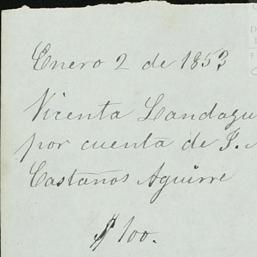 Enero 2 de 1853
Vicenta Landazu
por cuenta de J.
Castaños Aguirre
$100.